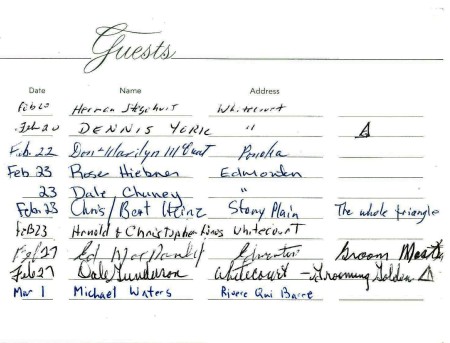 Guests
Date Name Address
Feb 20 Herman Whitecourt
Feb 20 DENNIS YORK "
Feb. 22 Don + Marilyn Ponoka
Feb 23 Rose Hiebner Edmonton
23 Dale Chuney "
Feb. 23 Chris / Bert Heinz Stony Plain The whole triangle
Feb 23 Harold & Christopher Whitecourt
Feb 27 Ed Edmonton Groom
Feb 27 Dale Gunderson Whitecourt - Grooming Golden
Mar 1 Michael Waters Riviere Qui Barre